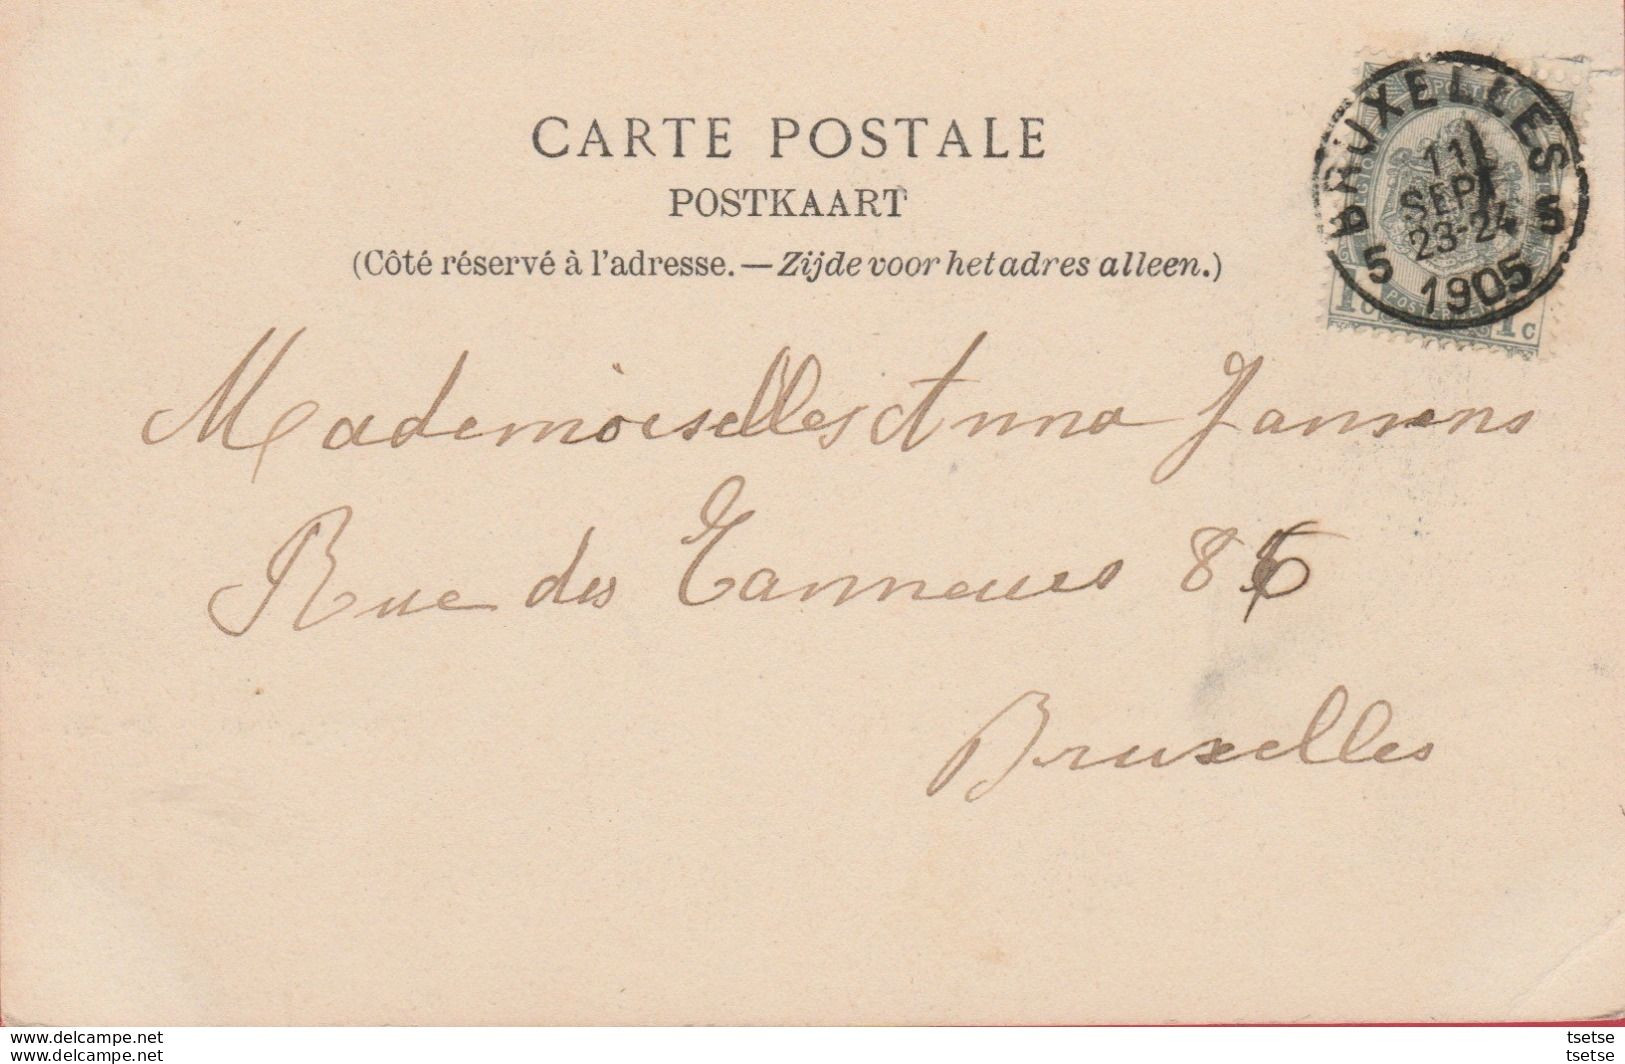 CARTE POSTALE
POSTKAART
(Côté réservé à l'adresse. — Zijde voor het adres alleen.)
BRUXELLES
11
SEPT
23-24
5 1905 5
1c 1c
Mademoiselles Anna Jansens
Rue des Tanneurs 86
Bruxelles
www.delcampe.net tsetse
www.delcampe.net tsetse